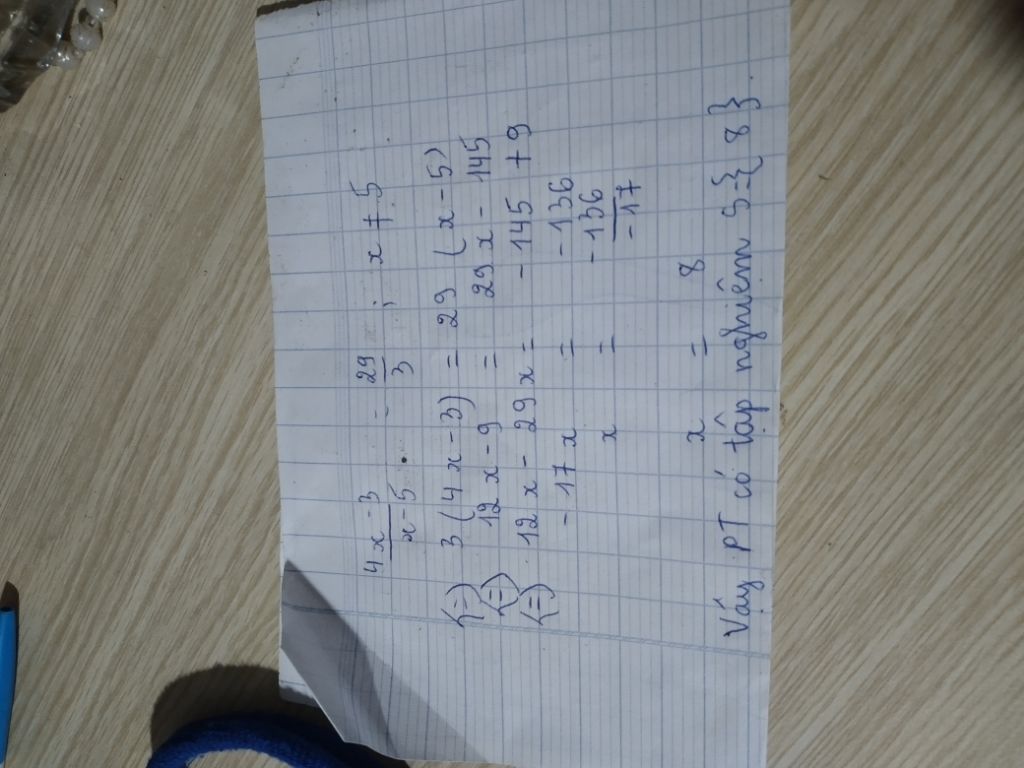 4x-3/x-5 = 29/3 ; x ≠ 5
(=) 3(4x-3) = 29(x-5)
(=) 12x-9 = 29x-145
(=) 12x-29x = -145+9
-17x = -136
x = -136/-17
x = 8
Vậy PT có tập nghiệm S={8}